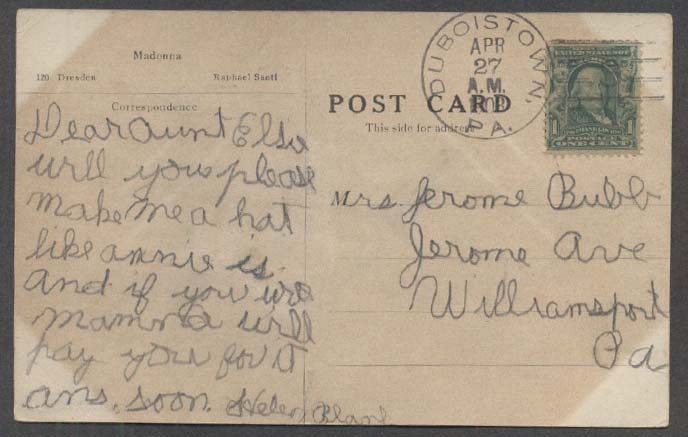 Madonna
120 Dresden Raphael Santi
Correspondence
Dear Aunt Elsie
will you please
make me a hat
like annie is
and if you will
Mamma will
pay you for it
ans. soon. Helen
POST CARD
This side for address
DUBOISTOWN,
APR
27
A.M.
PA.
UNITED STATES OF
FRANKLIN
POSTAGE
1 1
ONE CENT
Mrs. Jerome Bubb
Jerome Ave
Williamsport
Pa